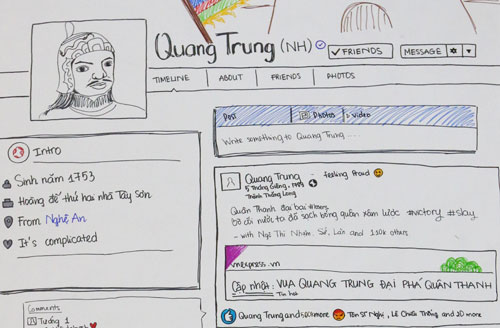 Quang Trung (NH)
✓ FRIENDS
MESSAGE
TIMELINE
ABOUT
FRIENDS
PHOTOS
Intro
Sinh năm 1753
Hoàng đế thứ hai nhà Tây Sơn
From Nghệ An
It's complicated
Comments
Tướng 1
Post
Photos
Video
Write something to Quang Trung ....
Quang Trung - feeling proud
5 Tháng Giêng,
Thành Thăng Long
Quân Thanh đại bại
bờ cõi nước ta đã sạch bóng quân xâm lược #victory #slay
- with Ngô Thì Nhậm, Sở, Lân and 110k others
vnexpress.vn
Cập nhật: VUA QUANG TRUNG ĐẠI PHÁ QUÂN THANH
Tin hot
Quang Trung and more
Tôn Sĩ Nghị, Lê Chiêu Thống and 20 more